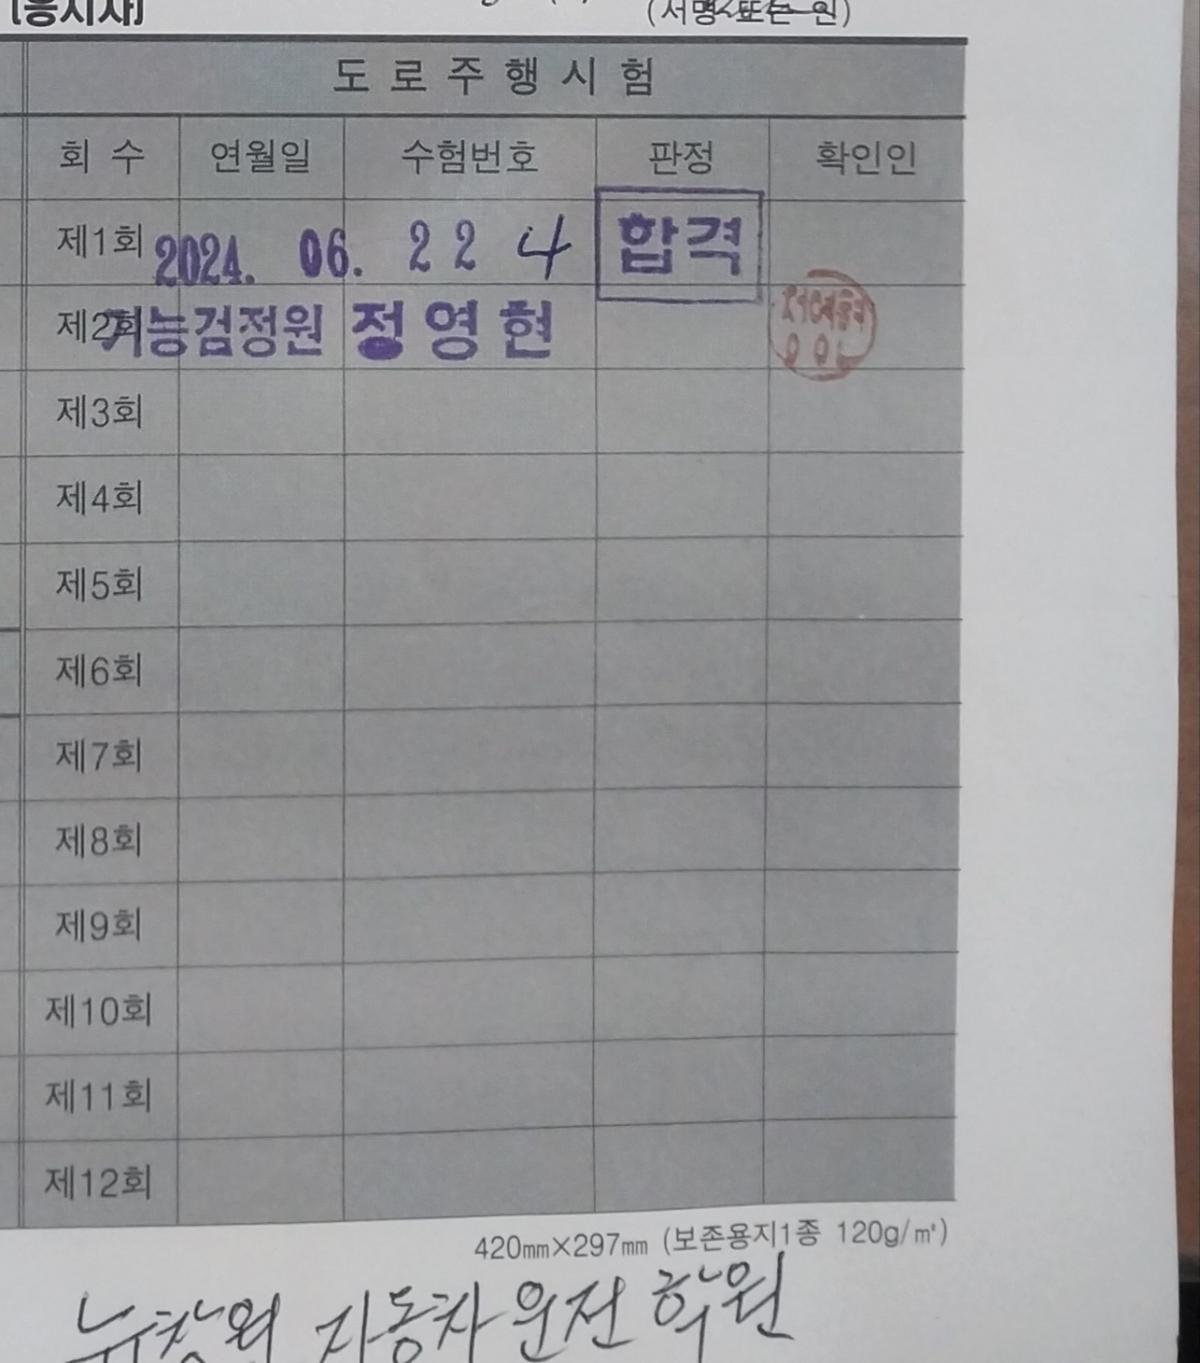 [응시자]
(서명 또는 인)
도로주행시험
회 수 연월일 수험번호 판정 확인인
제1회 2024. 06. 22 4 합격
제2회 기능검정원 정영현
제3회
제4회
제5회
제6회
제7회
제8회
제9회
제10회
제11회
제12회
420㎜×297㎜ (보존용지1종 120g/㎡)
뉴창원 자동차 운전 학원